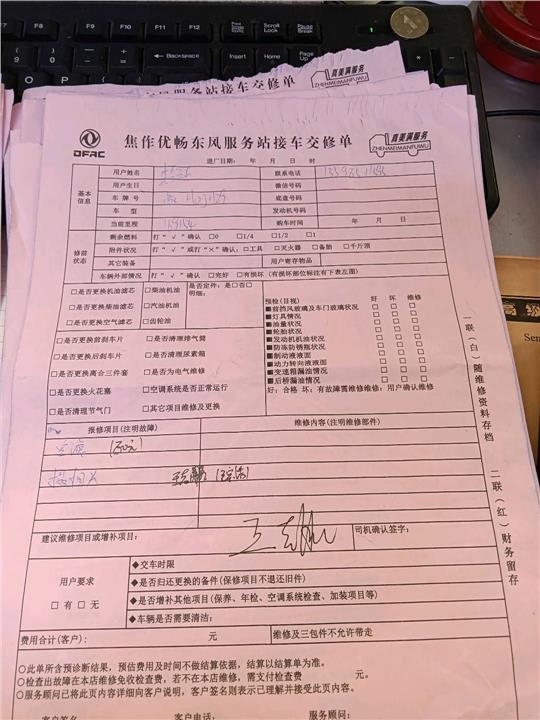 Print Screen SysRq
Scroll Lock
Pause Break
BackSpace
Insert
Home
Page Up
服务站接车交修单
真美满服务
ZHENMEIMANFUWU
DFAC
焦作优畅东风服务站接车交修单
真美满服务
ZHENMEIMANFUWU
进厂日期: 年 月 日 时
基本信息
用户姓名
联系电话
用户生日
微信号码
车牌号
底盘号码
车型
发动机号码
当前里程
购车时间 年 月 日
修前状态
剩余燃料 打"√"确认 □0 □1/4 □1/2 □1
附件状况 打"√"或打"×"确认: □工具 □灭火器 □备胎 □千斤顶
其它装备
用户寄存物品
车辆外部情况 打"√"确认 □完好 □有损坏 (有损坏部位标注有下表左图)
□是否更换机油滤芯 □柴油机油
是否定件: 是□否□
明细:
□是否更换柴油滤芯 □汽油机油
□是否更换空气滤芯 □齿轮油
□是否更换前刹车片 □是否清理排气筒
□是否更换后刹车片 □是否清理尿素箱
□是否更换离合三件套 □是否为电气维修
□是否更换火花塞 □空调系统是否正常运行
□是否清理节气门 □其它项目维修及更换
预检(目视) 好 坏 维修
■前挡风玻璃及车门玻璃状况 □ □ □
■灯具情况 □ □ □
■油量状况 □ □ □
■轮胎状况 □ □ □
■发动机机油状况 □ □ □
■防冻防锈瓶状况 □ □ □
■制动液液面 □ □ □
■动力转向液液面 □ □ □
■变速箱漏油情况 □ □ □
■后桥漏油情况 □ □ □
好: 合格 坏: 有故障需维修维修: 用户确认维修
报修项目(注明故障)
维修内容(注明维修部件)
建议维修项目或增补项目:
司机确认签字:
用户要求
□有□无
◆交车时限
◆是否归还更换的备件(保修项目不退还旧件)
◆是否增补其他项目(保养、年检、空调系统检查、加装项目等)
◆车辆是否需要清洁:
费用合计(客户): 元
维修及三包件不允许带走
○此单所含预诊断结果,预估费用及时间不做结算依据,结算以结算单为准。
○检查出故障在本店维修免收检查费,若不在本店维修,需支付检查费 元。
○服务顾问已将此页内容详细向客户说明,客户签名则表示已理解并接受此页内容。
客户签名:
客户电话:
服务顾问:
一联(白)随维修资料存档
二联(红)财务留存